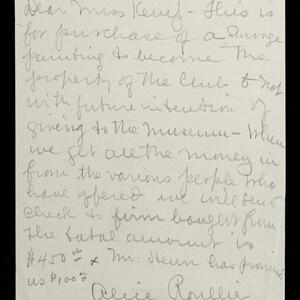 Dear Miss Kempf - This is
for purchase of a Survage
painting to become the
property of the Club & not
with future intention of
giving to the Museum - When
we get all the money in
from the various people who
have offered we will send
check to firm bought from
The total amount is
$450.00 & Mr. has promised
us $100.00
Alice Roullier